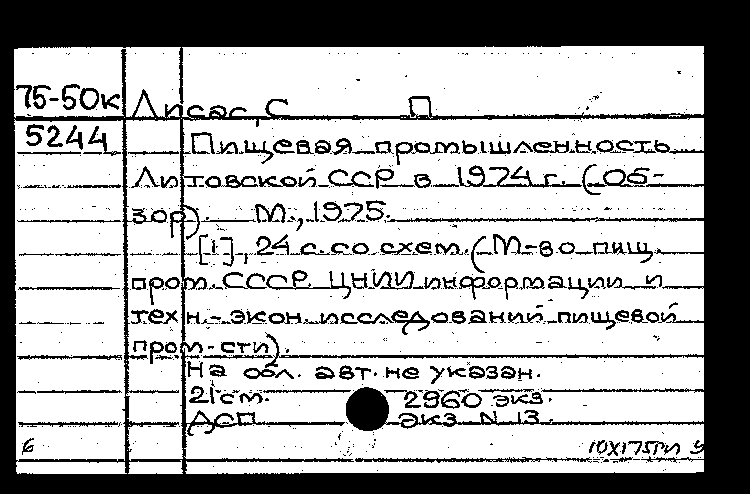 75-50к Лисас, С П
5244 Пищевая промышленность
Литовской ССР в 1974 г. (Об-
зор). М., 1975.
[1], 24 с. со схем. (М-во пищ.
пром. СССР. ЦНИИ информации и
техн.-экон. исследований пищевой
пром-сти).
На обл. авт. не указан.
21см. 2960 экз.
ДСП экз. N 13.
6